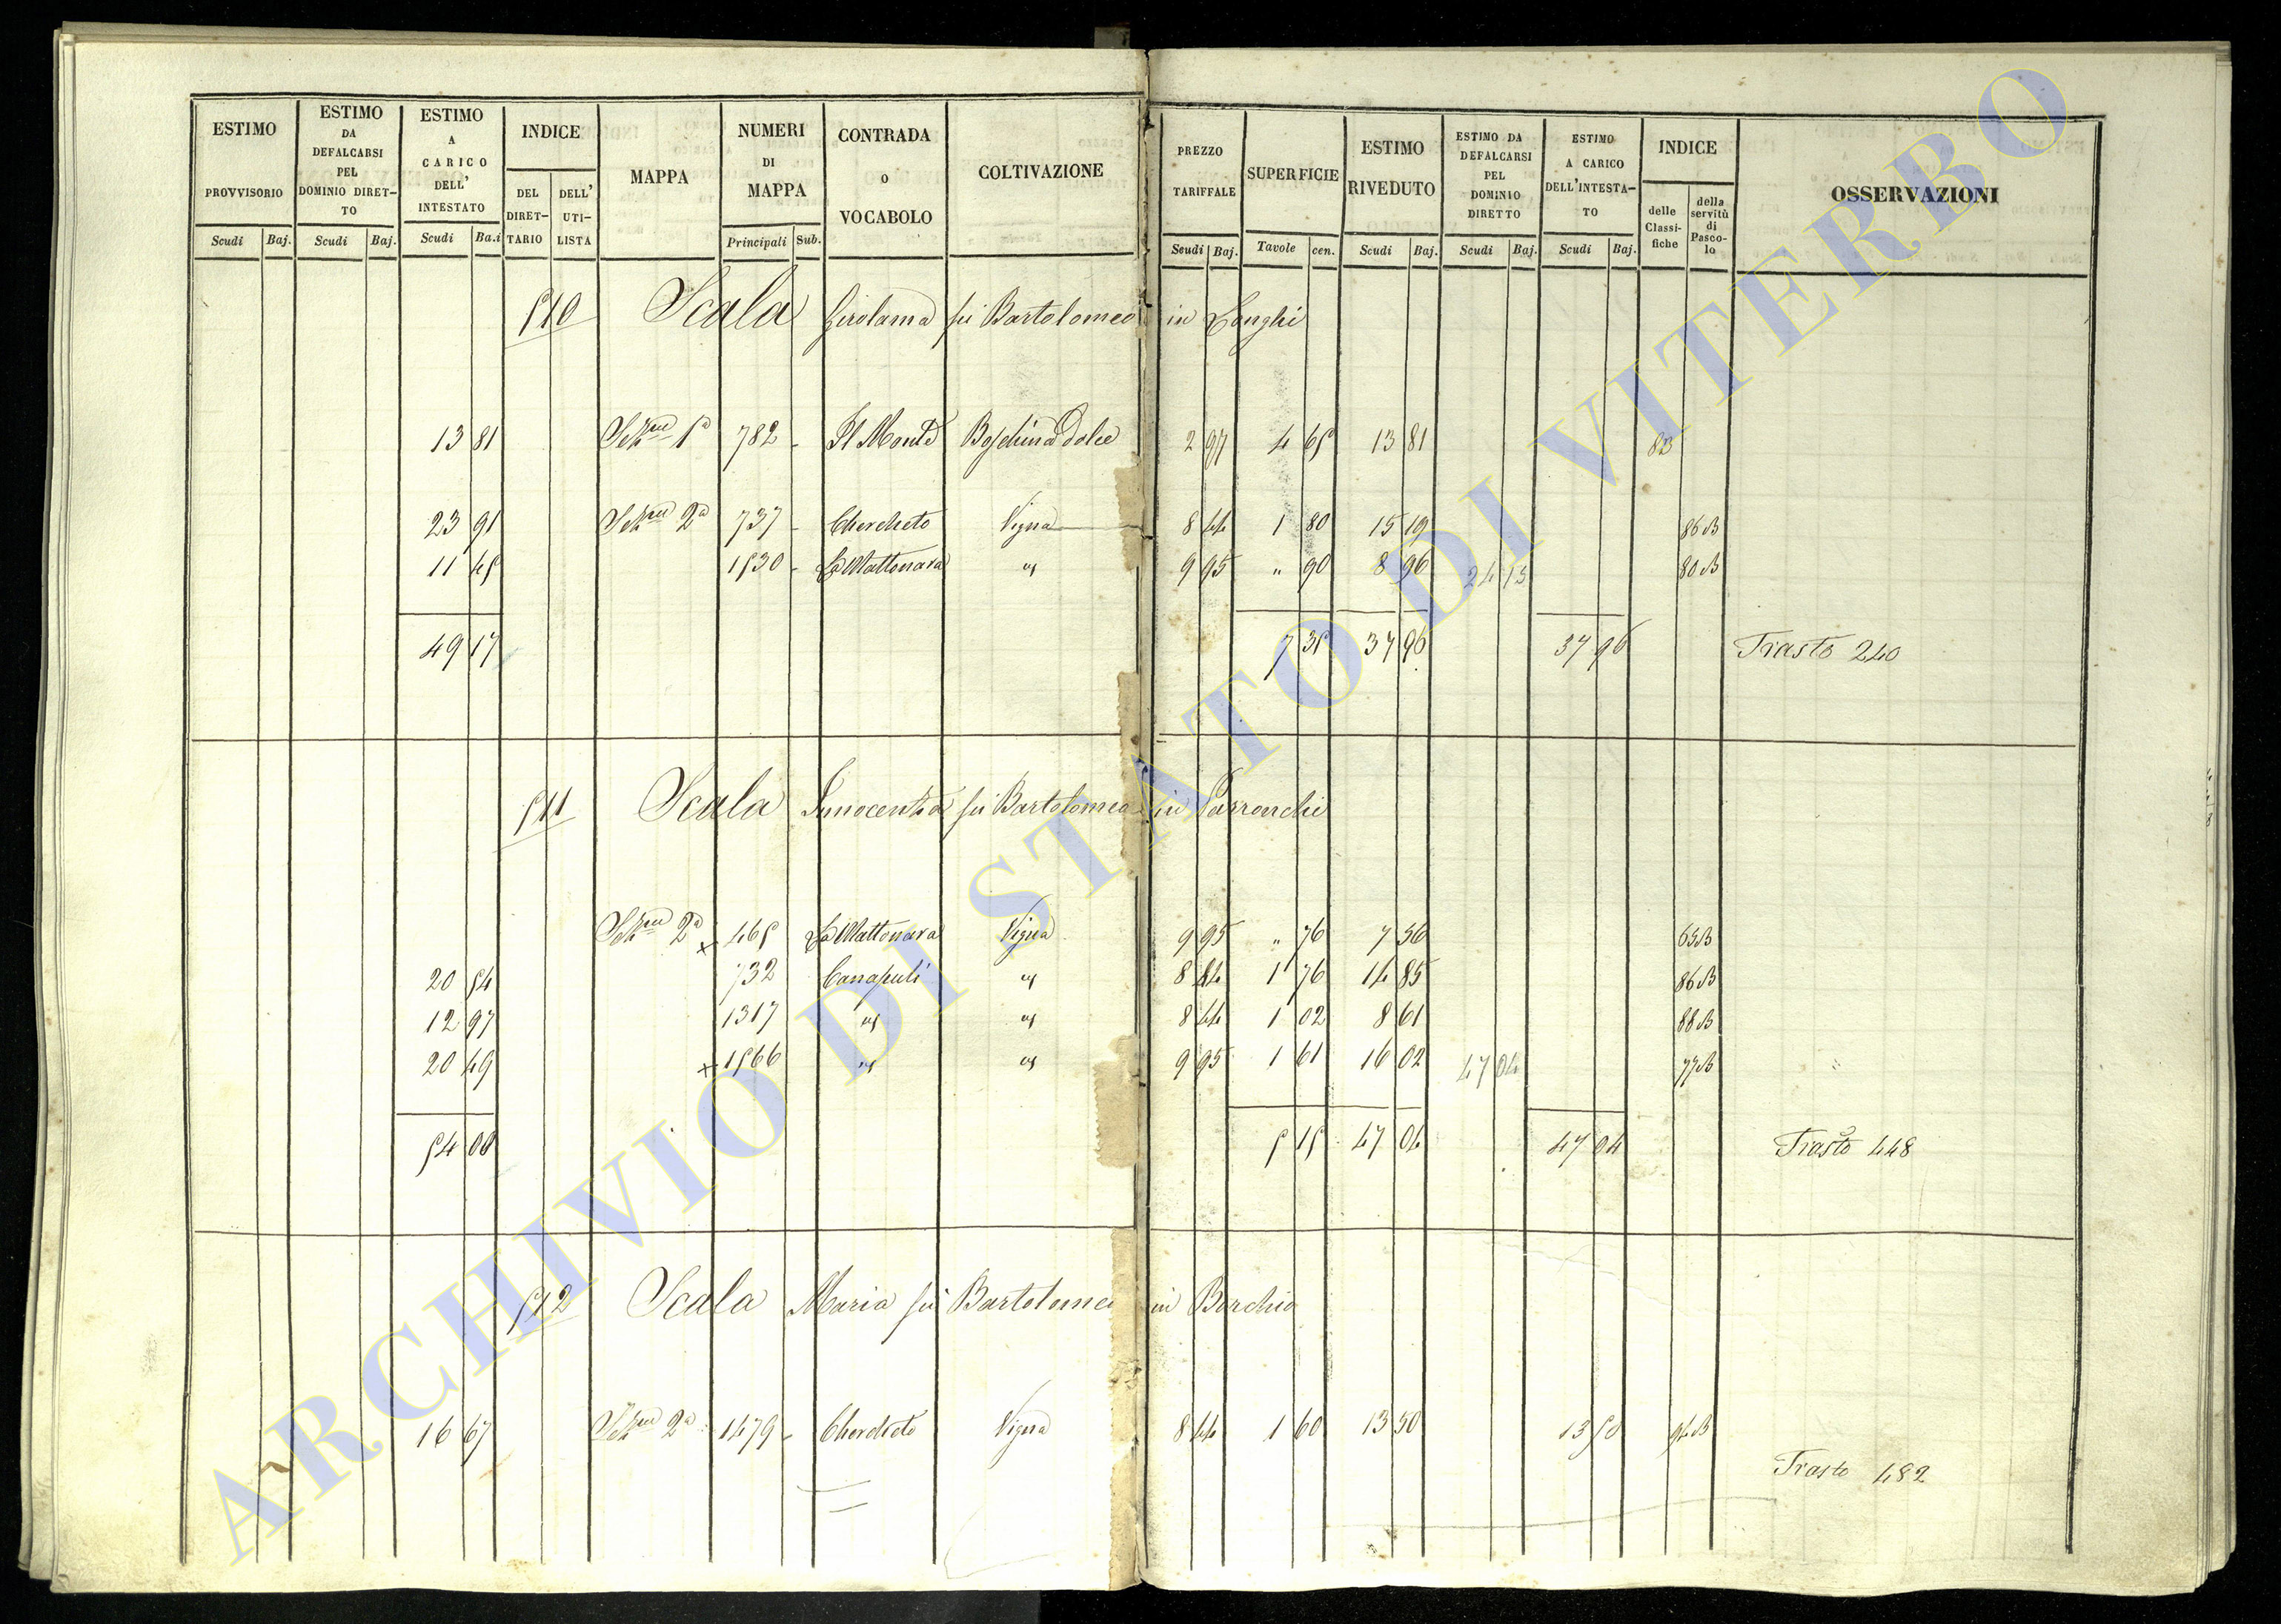 ESTIMO PROVVISORIO Scudi Baj.
ESTIMO DA DEFALCARSI PEL DOMINIO DIRET-TO Scudi Baj.
ESTIMO A CARICO DELL' INTESTATO Scudi Ba.i
INDICE DEL DIRET-TARIO DELL' UTI-LISTA
MAPPA
NUMERI DI MAPPA Principali Sub.
CONTRADA O VOCABOLO
COLTIVAZIONE
PREZZO TARIFFALE Scudi Baj.
SUPERFICIE Tavole cen.
ESTIMO RIVEDUTO Scudi Baj.
ESTIMO DA DEFALCARSI PEL DOMINIO DIRETTO Scudi Baj.
ESTIMO A CARICO DELL'INTESTA-TO Scudi Baj.
INDICE delle Classi-fiche della servitù di Pasco-lo
OSSERVAZIONI
510 Scala Girolama fu Bartolomeo in Longhi
13 81 1a 782 - Il Monte Boschina Dolce 2 97 4 65 13 81 82
23 91 2a 737 - Chercheto Vigna 8 44 1 80 15 19 86 B
11 45 1530 - La Mattonara " 9 95 " 90 8 96 24 15 80 B
49 17 7 35 37 96 37 96 Trasto 240
511 Scala Innocenza fu Bartolomeo in Parronchi
2a x 465 La Mattonara Vigna 9 95 " 76 7 56 65 B
20 54 732 Canapuli " 8 44 1 76 14 85 86 B
12 97 1317 " " 8 44 1 02 8 61 88 B
20 49 x 1566 " " 9 95 1 61 16 02 47 04 77 B
54 00 5 15 47 04 47 04 Trasto 448
512 Scala Maria fu Bartolomeo in Borchio
16 67 2a 1479 - Chercheto Vigna 8 44 1 60 13 50 13 50 94 B
Trasto 482
ARCHIVIO DI STATO DI VITERBO